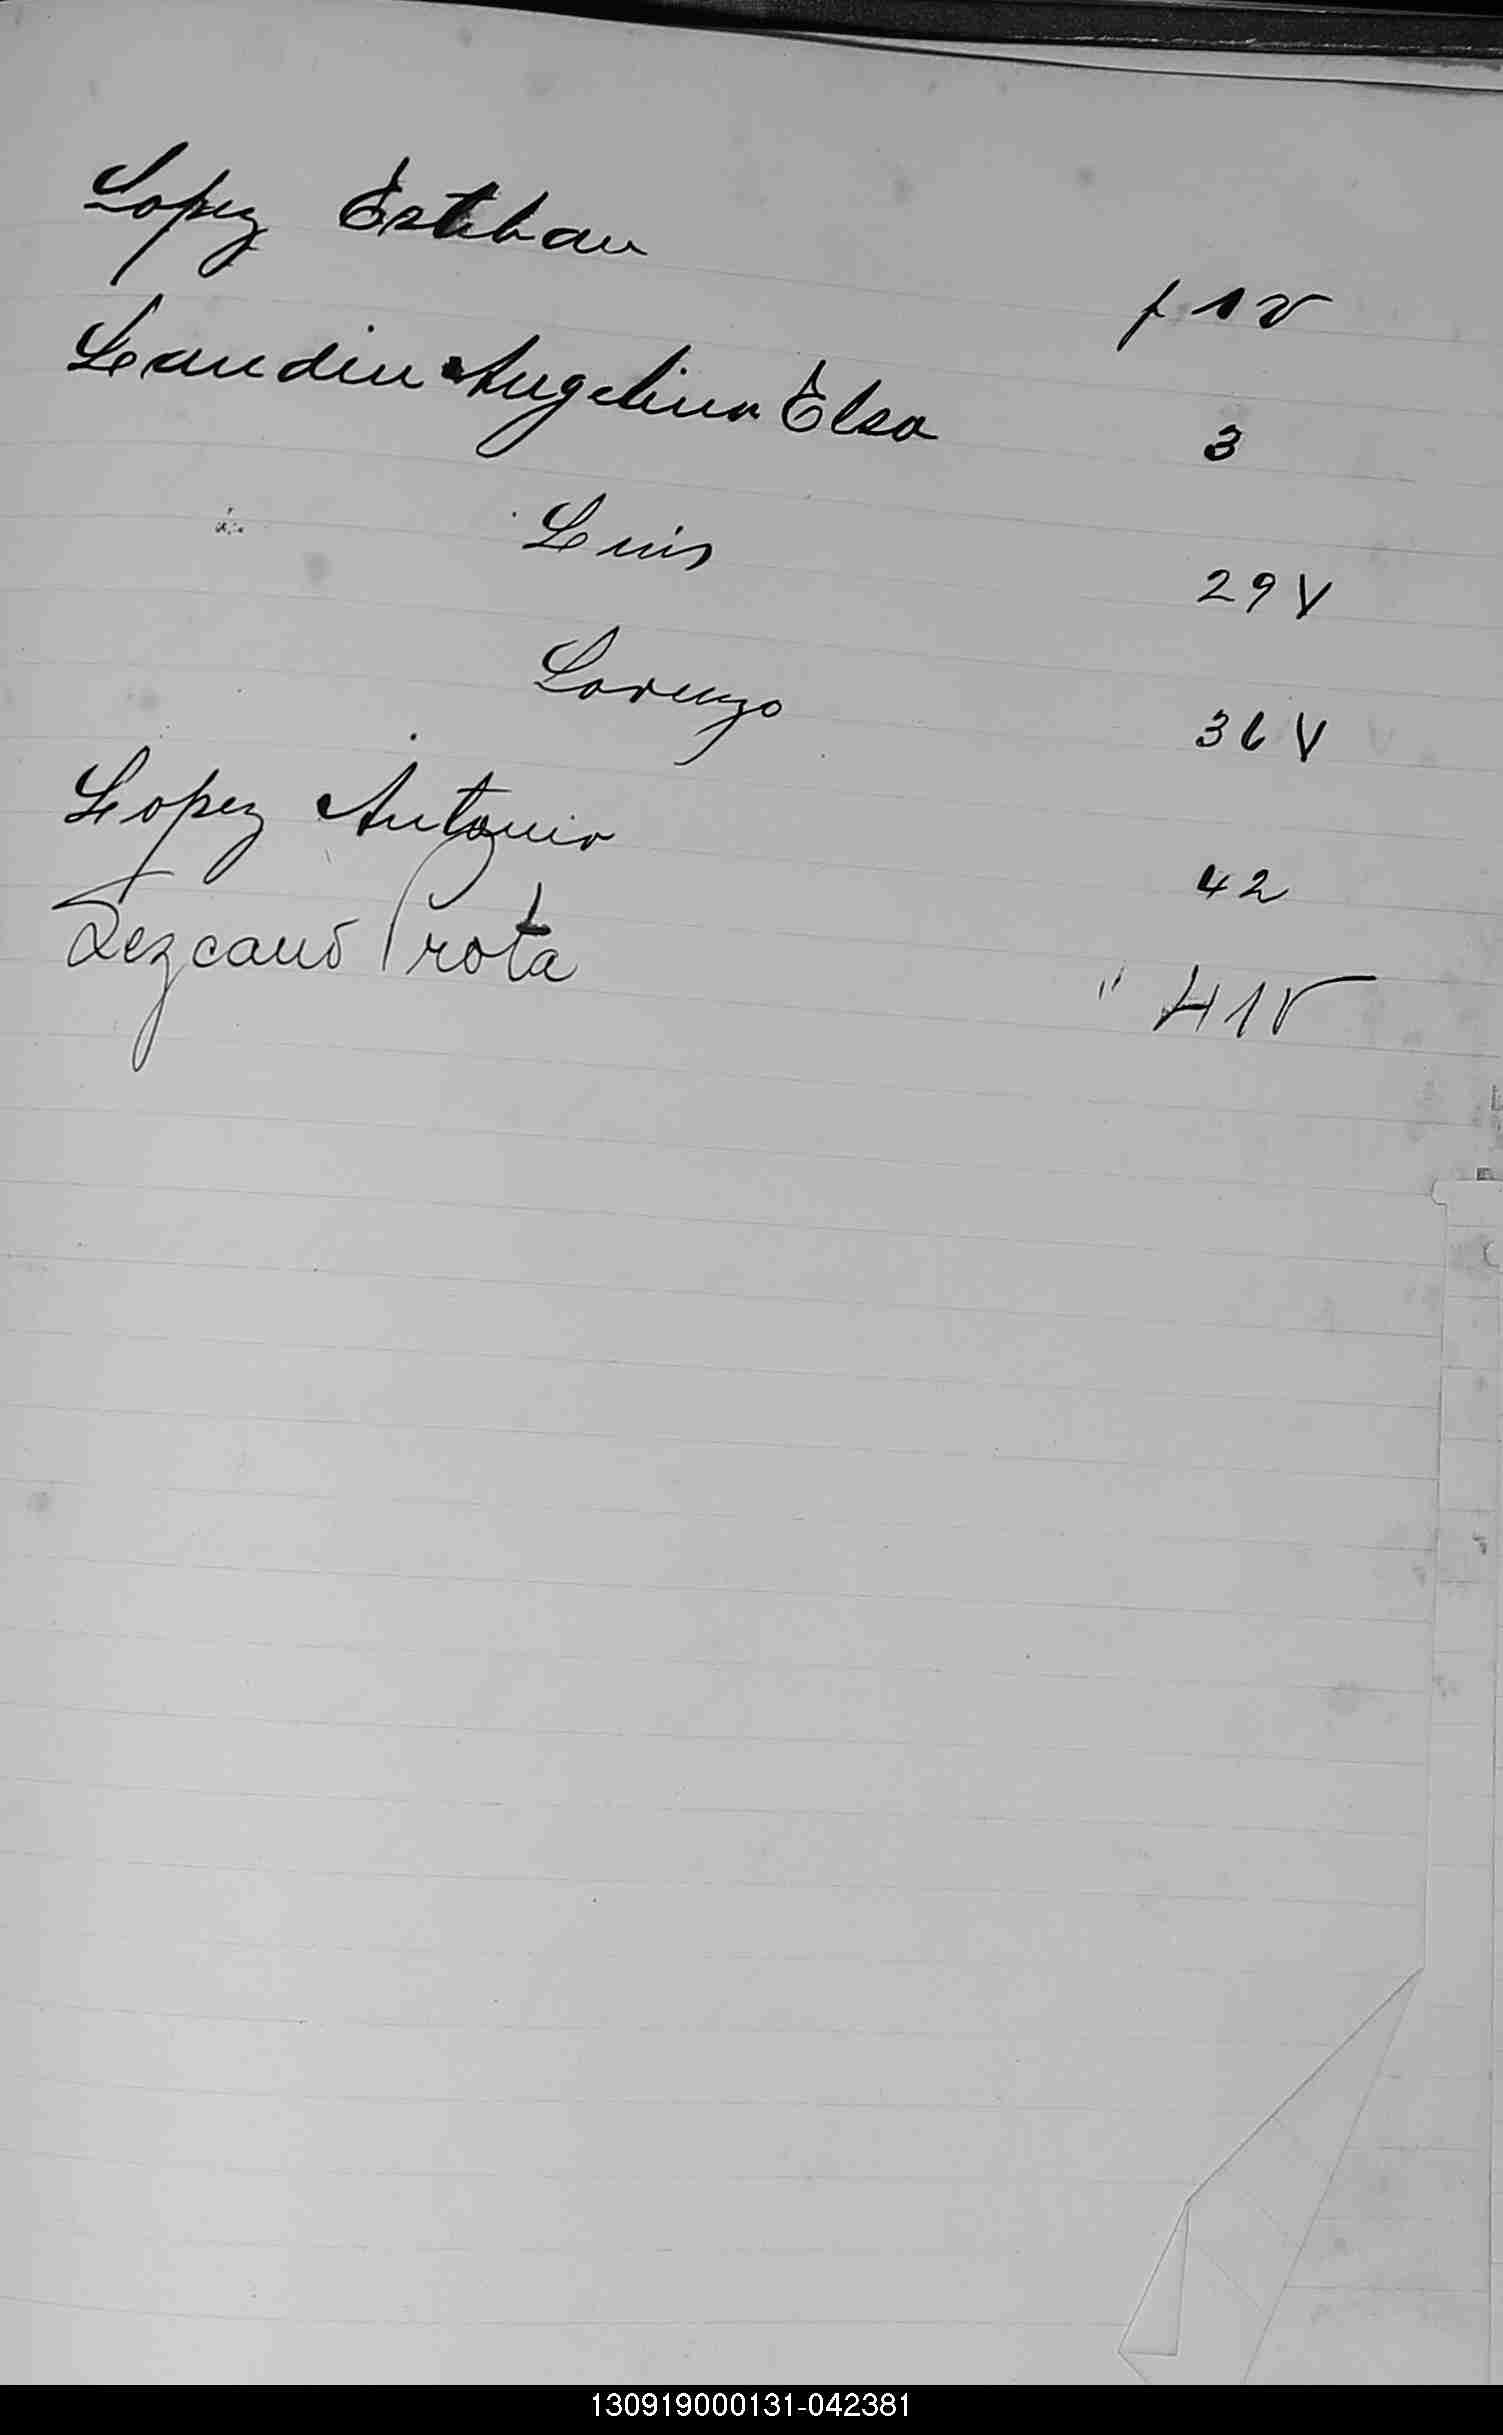 Lopez Esteban f 1 v
Landin Angelina Elsa 3
Luis 29 V
Lorenzo 36 V
Lopez Antonio 42
Lezcano Prota " 41 V
130919000131-042381